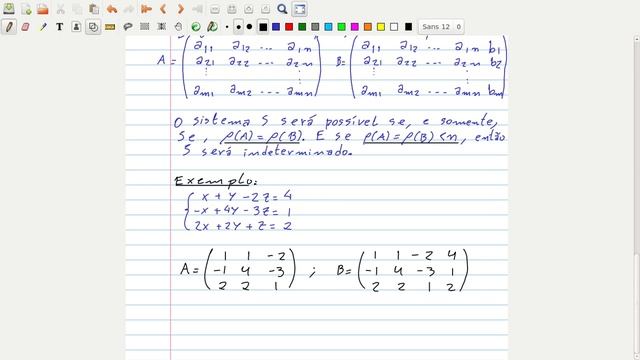 Sans 12 0
A = ( a11 a12 ... a1n B = ( a11 a12 ... a1n b1
a21 a22 ... a2n a21 a22 ... a2n b2
⋮ ⋮ ⋮ ⋮
am1 am2 ... amn ) am1 am2 ... amn bm )
O sistema S será possível se, e somente,
se, ρ(A)=ρ(B). E se ρ(A)=ρ(B)<n, então
S será indeterminado.
Exemplo:
{ x + y - 2z = 4
-x + 4y - 3z = 1
2x + 2y + z = 2
A = ( 1 1 -2 B = ( 1 1 -2 4
-1 4 -3 ) ; -1 4 -3 1
2 2 1 2 2 1 2 )